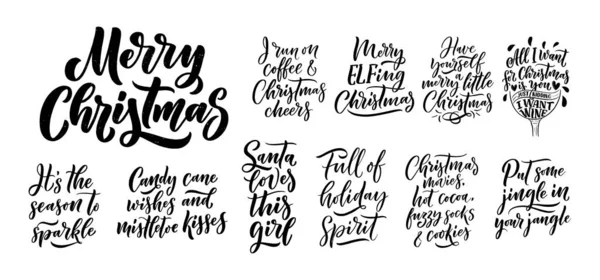 Merry
Christmas
I run on
coffee &
Christmas
cheers
Merry
ELFing
Christmas
Have
yourself
a
merry little
Christmas
All I want
for Christmas
is you
JUST KIDDING
I WANT
WINE
It's the
season to
sparkle
Candy cane
wishes and
mistletoe kisses
Santa
loves
this
girl
Full of
holiday
Spirit
Christmas
movies,
hot cocoa,
fuzzy socks
& cookies
Put some
jingle in
your jangle